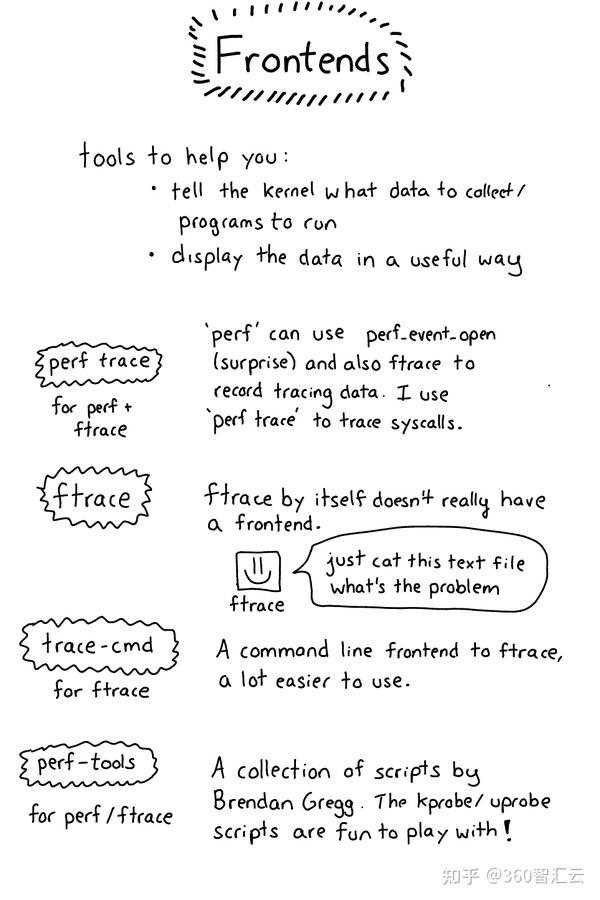 Frontends
tools to help you:
• tell the kernel what data to collect/
programs to run
• display the data in a useful way
perf trace
for perf +
ftrace
'perf' can use perf_event_open
(surprise) and also ftrace to
record tracing data. I use
'perf trace' to trace syscalls.
ftrace
ftrace by itself doesn't really have
a frontend.
just cat this text file
what's the problem
ftrace
trace-cmd
for ftrace
A command line frontend to ftrace,
a lot easier to use.
perf-tools
for perf/ftrace
A collection of scripts by
Brendan Gregg. The kprobe/uprobe
scripts are fun to play with!
知乎 @360智汇云